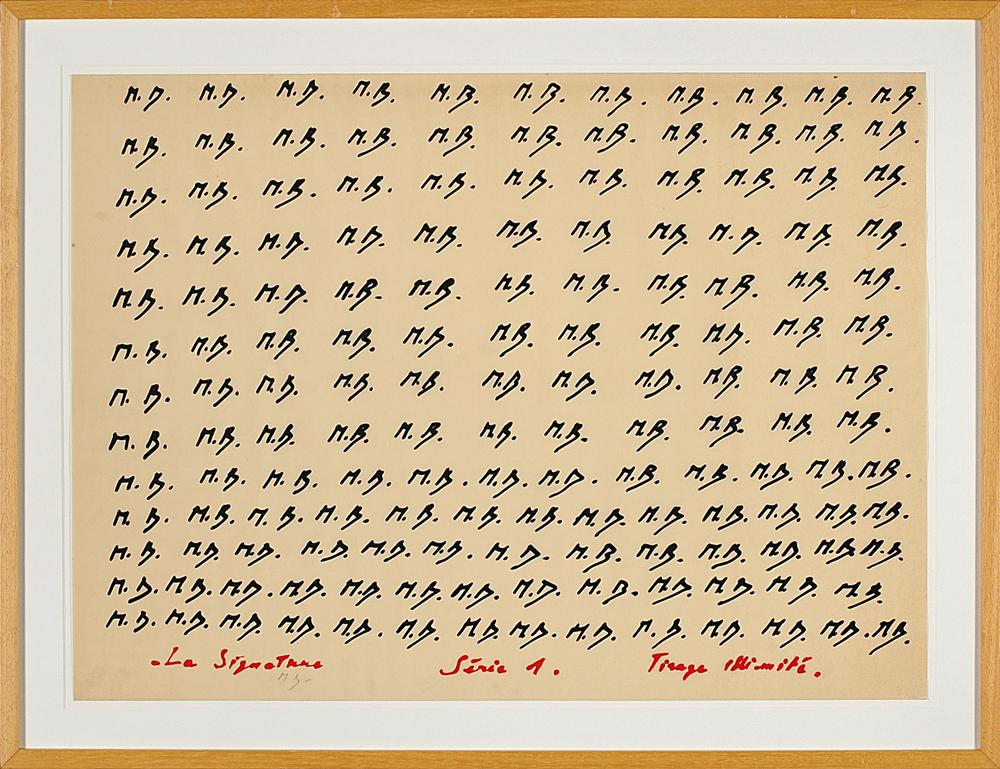 M.B. M.B. M.B. M.B. M.B. M.B. M.B. M.B. M.B. M.B. M.B.
M.B. M.B. M.B. M.B. M.B. M.B. M.B. M.B. M.B. M.B. M.B.
M.B. M.B. M.B. M.B. M.B. M.B. M.B. M.B. M.B. M.B. M.B.
M.B. M.B. M.B. M.B. M.B. M.B. M.B. M.B. M.B. M.B. M.B.
M.B. M.B. M.B. M.B. M.B. M.B. M.B. M.B. M.B. M.B. M.B.
M.B. M.B. M.B. M.B. M.B. M.B. M.B. M.B. M.B. M.B. M.B.
M.B. M.B. M.B. M.B. M.B. M.B. M.B. M.B. M.B. M.B. M.B.
M.B. M.B. M.B. M.B. M.B. M.B. M.B. M.B. M.B. M.B. M.B.
M.B. M.B. M.B. M.B. M.B. M.B. M.B. M.B. M.B. M.B. M.B. M.B.
M.B. M.B. M.B. M.B. M.B. M.B. M.B. M.B. M.B. M.B. M.B. M.B. M.B.
M.B. M.B. M.B. M.B. M.B. M.B. M.B. M.B. M.B. M.B. M.B. M.B. M.B.
M.B. M.B. M.B. M.B. M.B. M.B. M.B. M.B. M.B. M.B. M.B. M.B. M.B.
M.B. M.B. M.B. M.B. M.B. M.B. M.B. M.B. M.B. M.B. M.B. M.B. M.B. M.B.
.La Signature Série 1. Tirage illimité.
M.B.